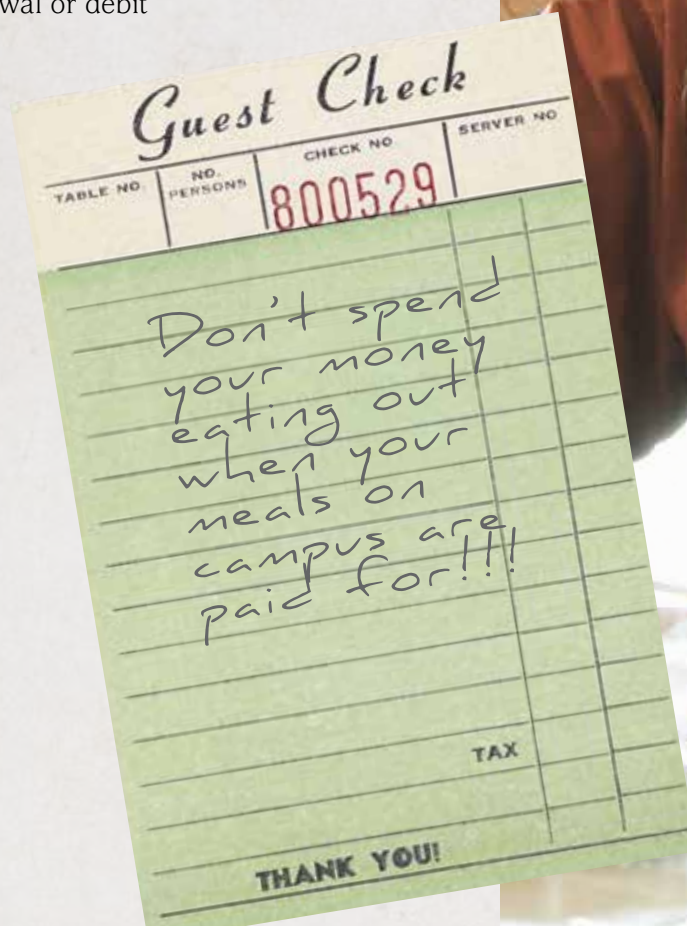 wal or debit
Guest Check
TABLE NO.
NO.
PERSONS
CHECK NO
SERVER NO
800529
Don't spend
your money
eating out
when your
meals on
campus are
paid for!!!
TAX
THANK YOU!